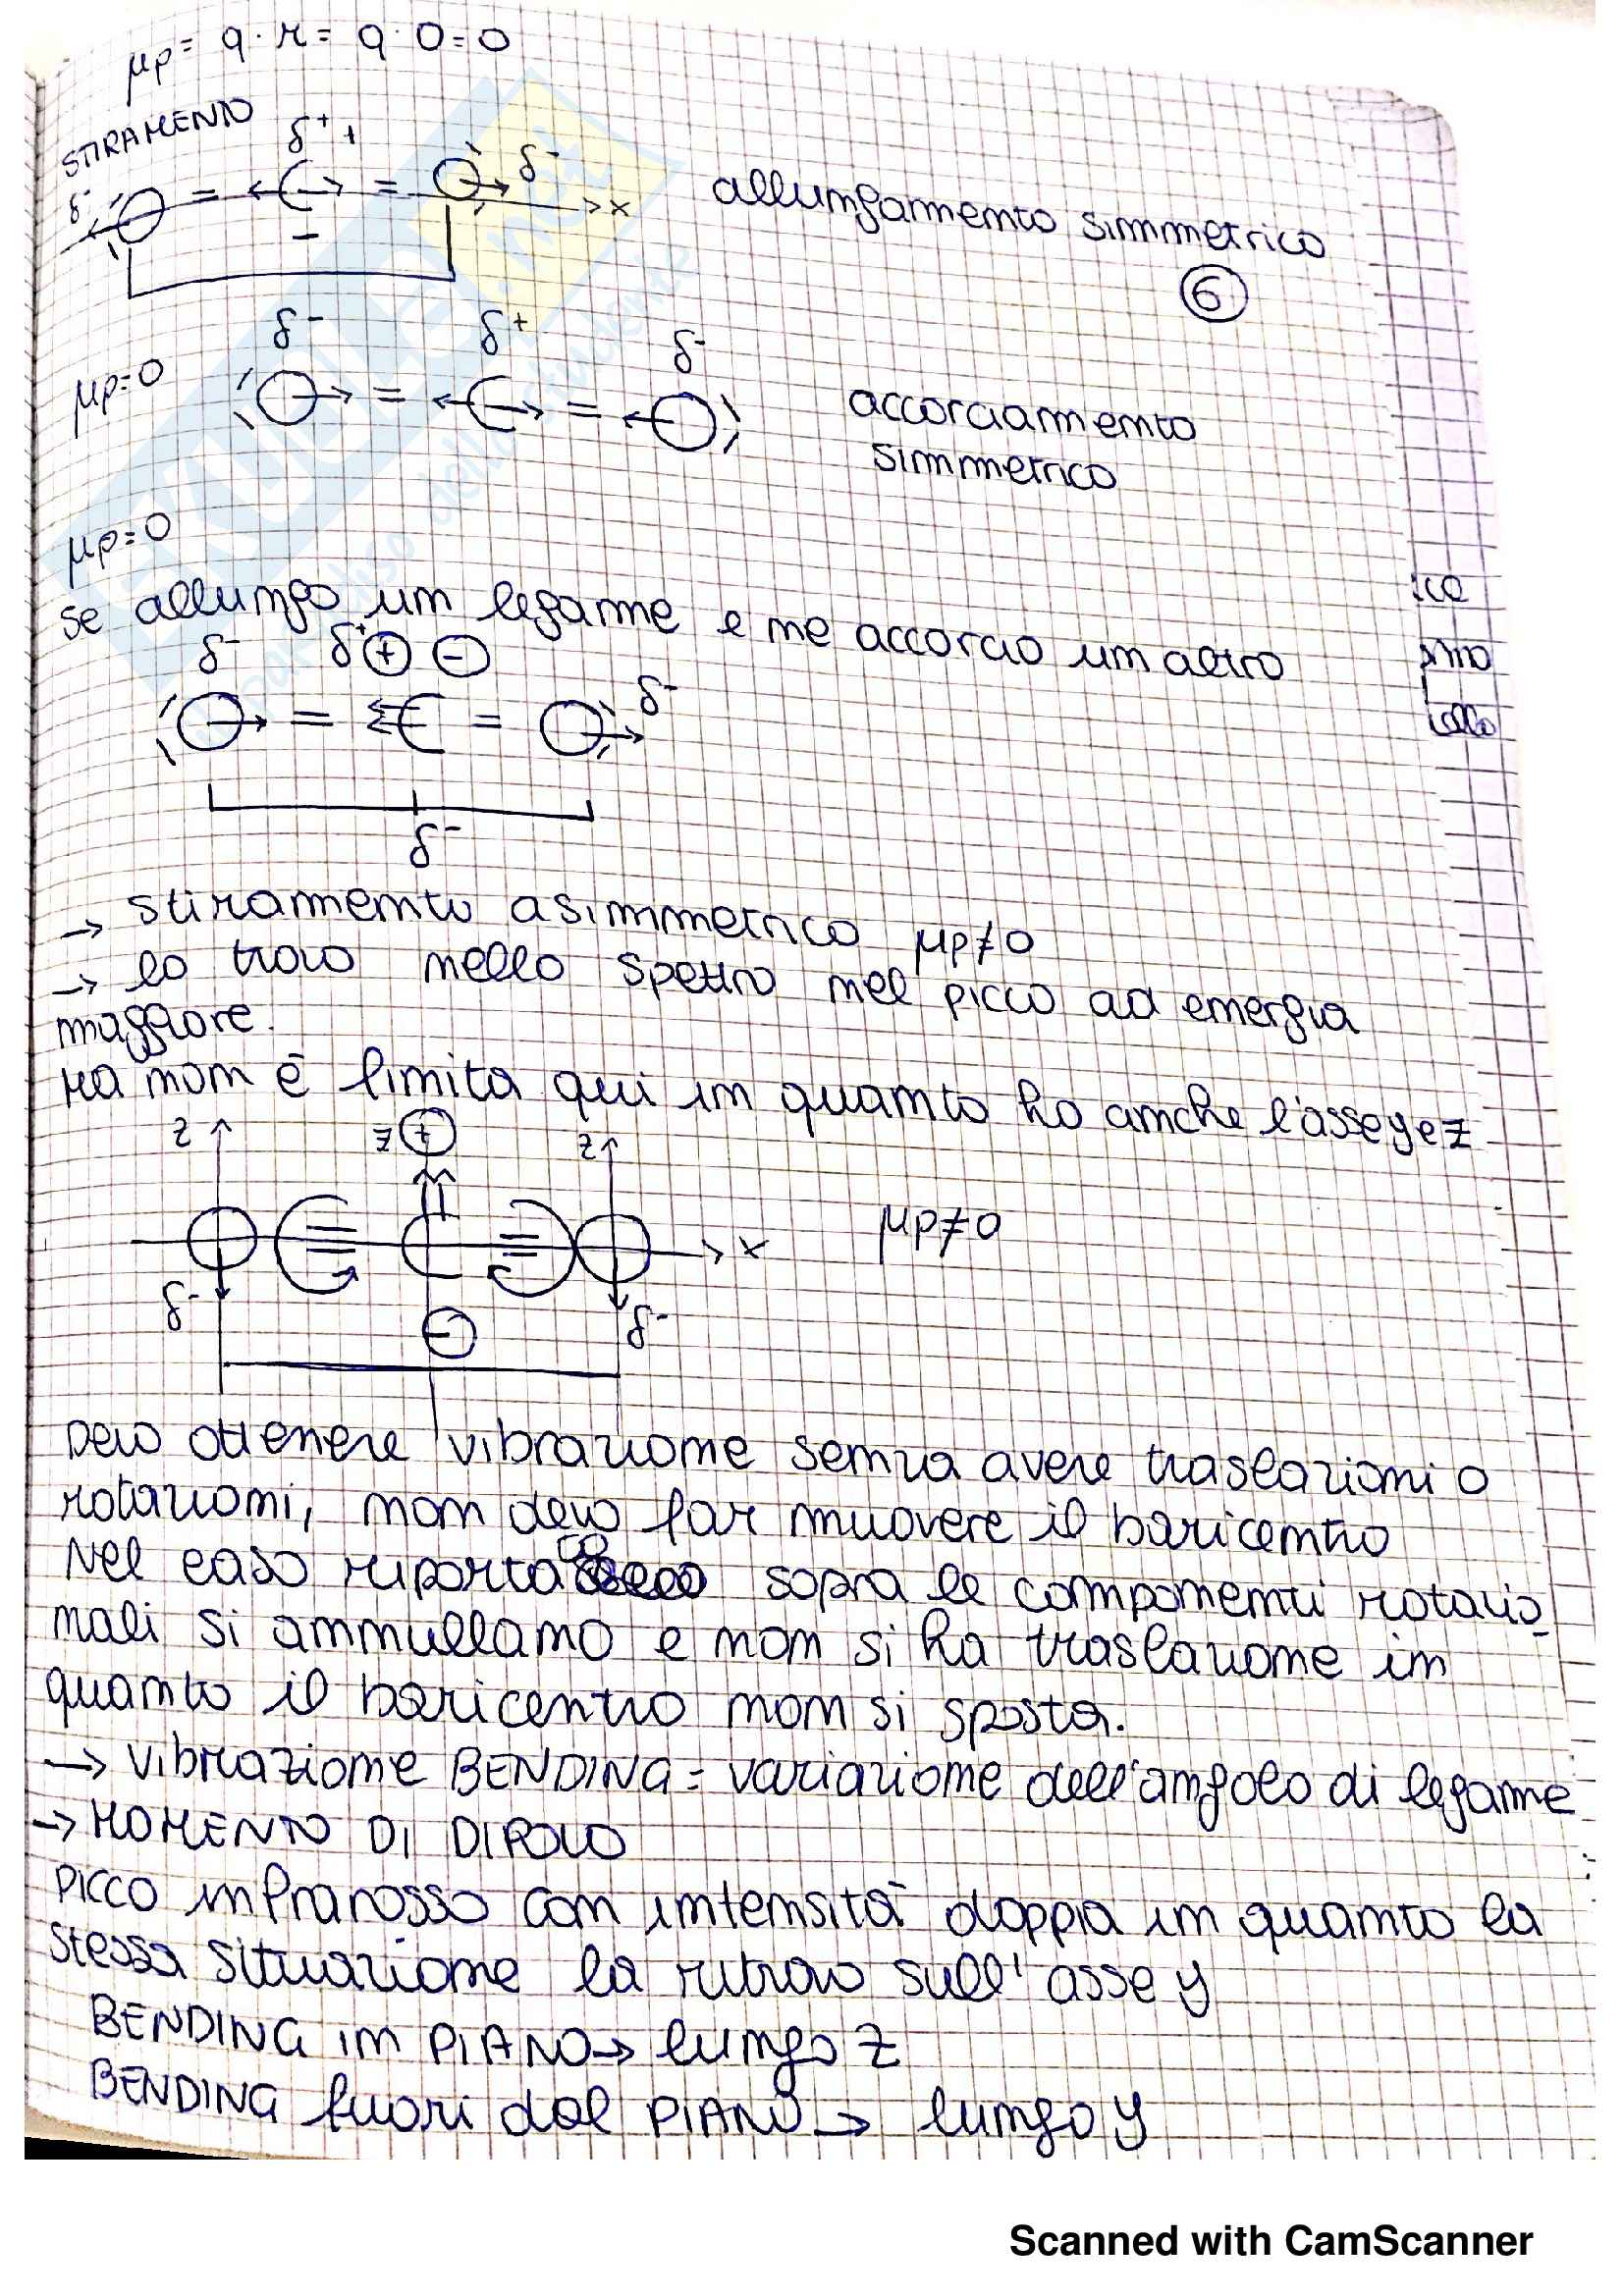 μp = q · r = q · 0 = 0
STIRAMENTO
δ⁺ +
δ⁻ O = C = O δ⁻ x
−
allungamento simmetrico
6
δ⁻ δ⁺ δ⁻
μp=0
O = C = O
accorciamento
simmetrico
μp=0
se allungo un legame e ne accorcio un altro
δ⁻ δ⁺ + −
O = C = O δ⁻
δ⁻
→ stiramento asimmetrico μp≠0
→ lo trovo nello spettro nel picco ad energia
maggiore.
Ma non è finita qui in quanto ho anche l'asse y e z
z z + z
O = C = O x μp≠0
δ⁻ − δ⁻
Devo ottenere vibrazione senza avere traslazioni o
rotazioni, non devo far muovere il baricentro
Nel caso riporta sopra le componenti rotazio_
nali si annullano e non si ha traslazione in
quanto il baricentro non si sposta.
→ vibrazione BENDING = variazione dell'angolo di legame
→ MOMENTO DI DIPOLO
PICCO infrarosso con intensità doppia in quanto la
stessa situazione la ritrovo sull'asse y
BENDING in PIANO → lungo z
BENDING fuori dal PIANO → lungo y
Scanned with CamScanner